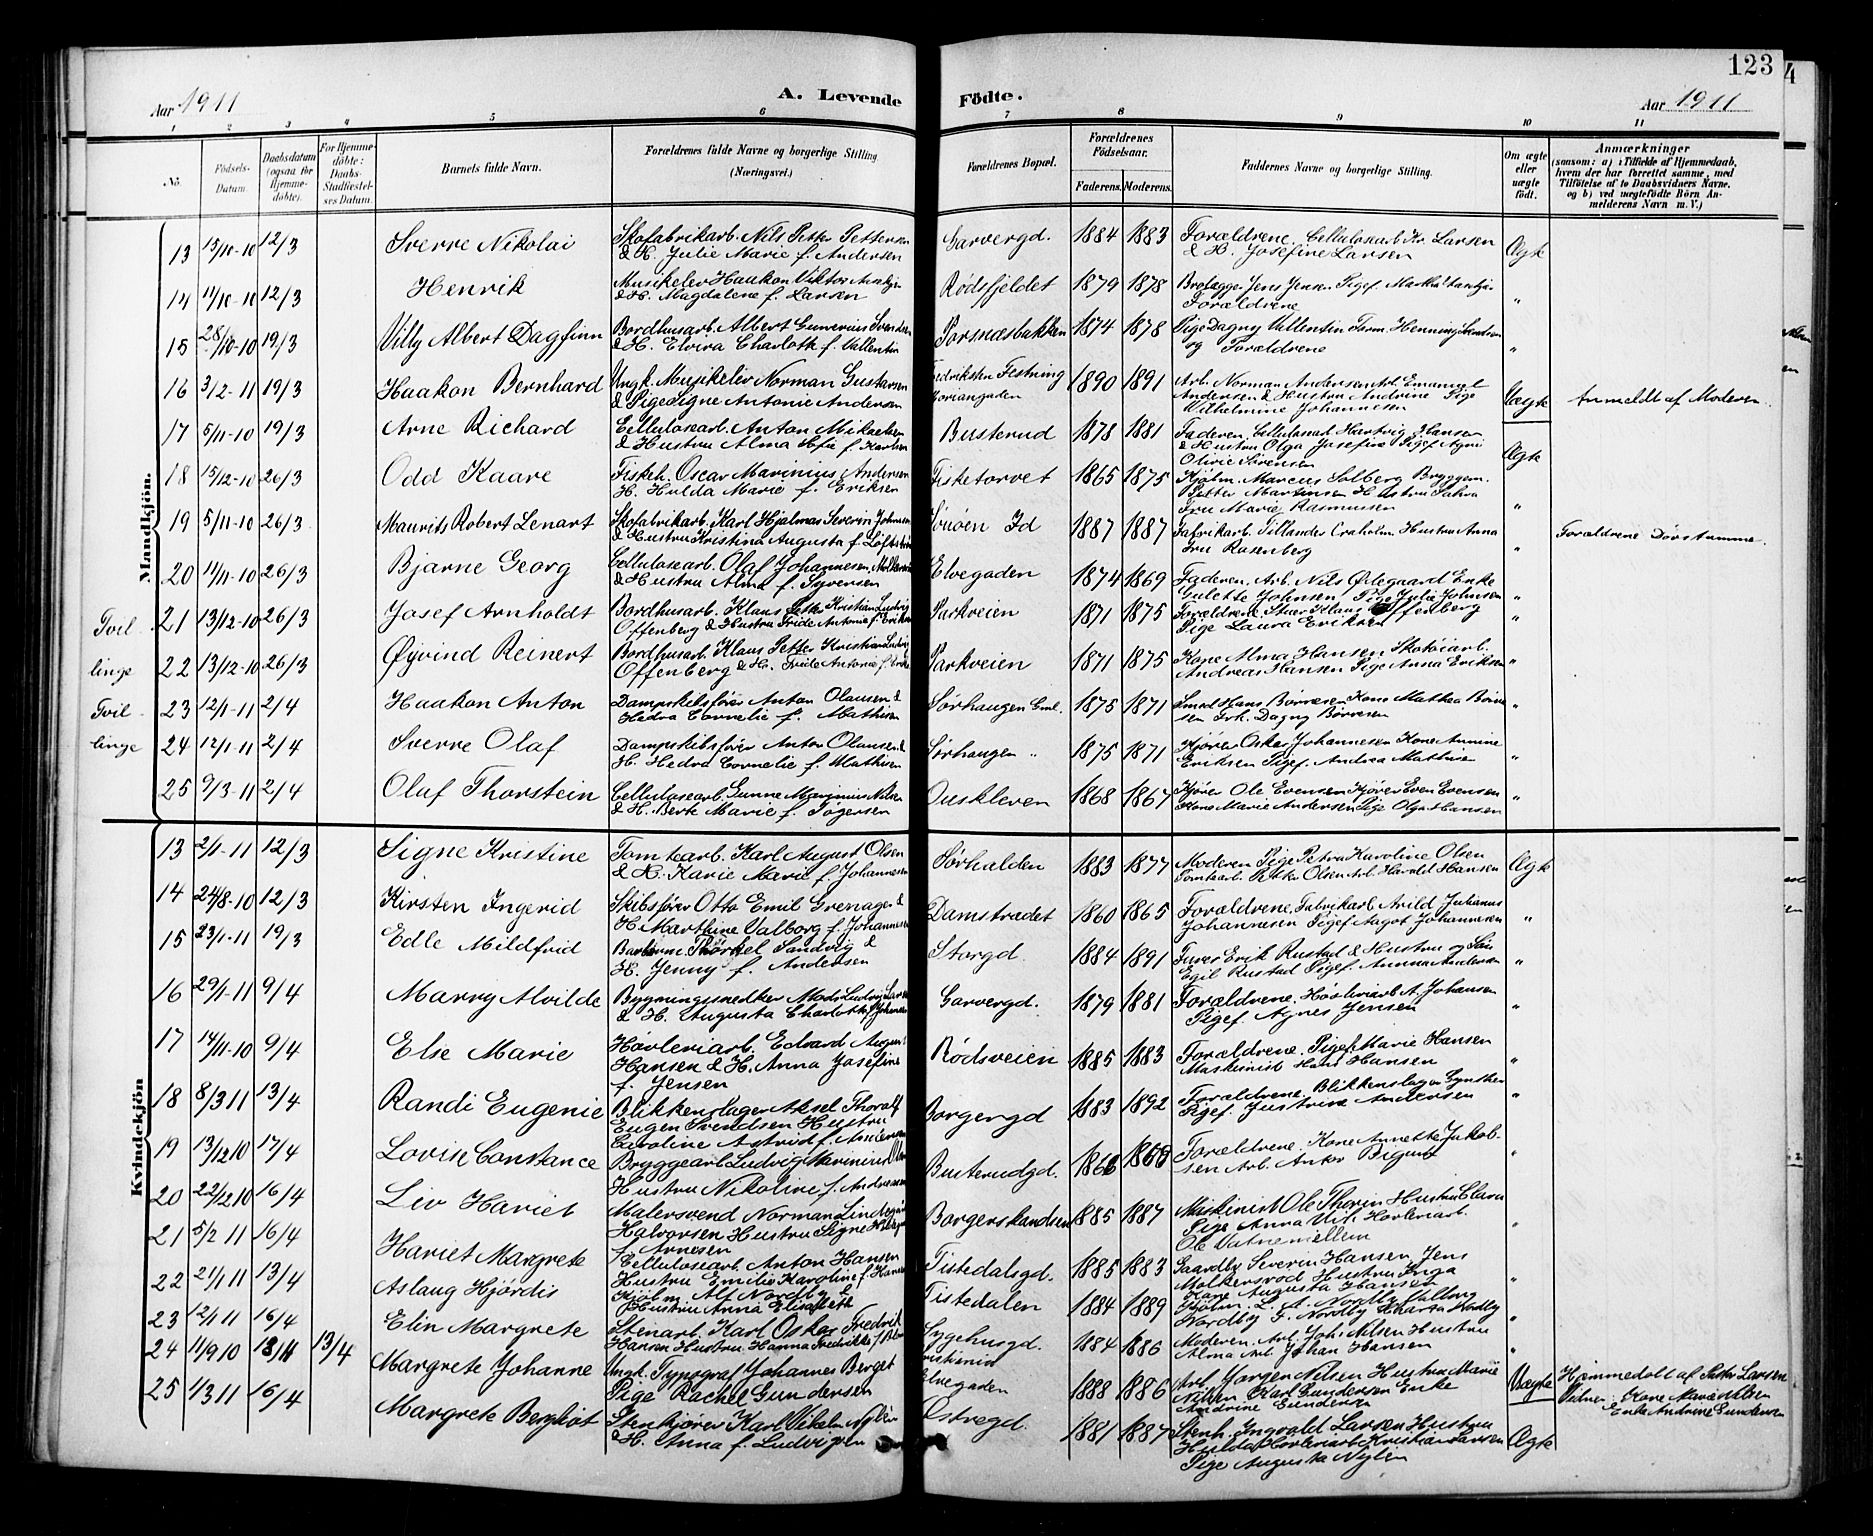 123
Aar 1911 A. Levende Fødte. Aar 1911
1 2 3 4 5 6 7 8 9 10 11
No. Fødsels-Datum. Daabsdatum (ogsaa for Hjemme-døbte). For Hjemme-døbte: Daabs-Stadfæstel-ses Datum. Barnets fulde Navn. Forældrenes fulde Navne og borgerlige Stilling (Næringsvei.) Forældrenes Bopæl. Forældrenes Fødselsaar. Faderens. Moderens. Faddernes Navne og borgerlige Stilling. Om ægte eller uægte født. Anmærkninger (saasom: a) i Tilfælde af Hjemmedaab, hvem der har forrettet samme, med Tilføielse af to Daabsvidners Navne, og b) ved uægtefødte Børn An-melderens Navn m. V.)
Mandkjön.
13 13/10-10 12/3 Sverre Nikolai Skofabrikarb. Nils Petter Pettersen & H. Julie Marie f. Andersen Garvergd. 1884 1883 Forældrene, Cellulosearb. Kr. Larsen & H. Josefine Larsen Ægte
14 11/10-10 12/3 Henrik Musikelev Haakon Viktor & H. Magdalene f. Larsen Rødsfjeldet 1879 1878 Brolægger Jens Jensen Pigef. Forældrene "
15 28/10-10 19/3 Villy Albert Dagfinn Bordhusarb. Albert Gunerius Svendsen & H. Elvira Charlotte f. Vallentin Porsnæsbakken 1874 1878 Pige Dagny Vallentin Form. Henning Svendsen og Forældrene "
16 3/2-11 19/3 Haakon Bernhard Ungk. Musikelev Norman Gustavsen & Pige Signe Antonie Andersen Fredriksten Festning 1890 1891 Arb. Norman Andersen Arb. Emanuel Andersen & Hustru Andrine Pige Vilhelmine Johannesen Uægte Anmeldt af Moderen.
17 5/11-10 19/3 Arne Richard Cellulosearb. Anton Mikaelsen & Hustru Alma f. Karlsen Busterud 1878 1881 Faderen, Cellulosearb Hartvig Hansen & Hustru Olga Josefine Pigef Agni Olivie Sørensen Ægte
18 15/12-10 26/3 Odd Kaare Fiskeh. Oscar Marinius Andersen H. Hulda Marie f. Eriksen Fisketorvet 1865 1875 Kjøbm. Marcus Solberg Bryggem. Petter Martinsen Hustru Fru Marie Rasmussen "
19 5/11-10 26/3 Maurits Robert Lenart Skofabrikarb. Karl Hjalmar Severin Johnsen & Hustru Kristina Augusta f. Id 1887 1887 Fabrikarb. Hustru Anna Fru Rosenberg " Forældrene Døvstumme.
20 11/11-10 26/3 Bjarne Georg Cellulosearb. Olaf Johannesen & Hustru Alma f. Syversen Elvegaden 1874 1869 Faderen, Arb. Nils Ødegaard Enke Gulette Johnsen Pige Julie Johnsen "
Tvil-
linge
21 13/12-10 26/3 Josef Arnholdt Bordhusarb. Klaus Petter Kristian Ludvig Offenberg & Hustru Fride Antonie f. Eriksen Parkveien 1871 1875 Forældrene Klaus Offenberg Pige Laura Eriksen "
22 13/12-10 26/3 Øyvind Reinert Bordhusarb. Klaus Petter Kristian Ludvig Offenberg & H. Fride Antonie f. Parkveien 1871 1875 Kone Alma Hansen Skotøiarb. Andreas Hansen Pige Anna Eriksen "
Tvil-
linge
23 12/1-11 2/4 Haakon Anton Dampskibsfører Anton Olausen & Hedva Cornelie f. Mathisen Sørhaugen Gml. 1875 1871 Smed Hans Børresen Kone Mathea Børresen Frk. Dagny Børresen "
24 12/1-11 2/4 Sverre Olaf Dampskibsfører Anton Olausen & H. Hedva Cornelie f. Mathisen Sørhaugen " 1875 1871 Kjører Oskar Johannesen Kone Annine Eriksen Pigef. Andrea Mathisen "
25 9/3-11 2/4 Oluf Thorstein Cellulosearb. Gunne Marinius Nilsen & H. Berte Marie f. Tøgersen Ouskleven 1868 1867 Kjører Ole Evensen Kjører Even Evensen Kone Marie Andersen Pige Olga Hansen "
Kvindekjön
13 2/1-11 12/3 Signe Kristine Tomtearb. Karl August Olsen & H. Karie Marie f. Johannesen Sørhalden 1883 1877 Moderen Pige Petra Karoline Olsen Tomtearb. Petter Olsen Arb. Harald Hansen Ægte
14 24/8-10 12/3 Kirsten Ingerid Skibsfører Otto Emil Grenager & H. Marthine Valborg f. Johannesen Damstrædet 1860 1865 Forældrene, Fabrikarb Arild Julianus Johannesen Pigef Aagot Johannesen "
15 23/1-11 19/3 Edle Mildfrid Thorkel Sandvig & H. Jenny f. Andersen Storgd. 1884 1891 Erik Rustad & Hustru og Søn Egil Rustad Pigef. Anna Andersen "
16 29/1-11 9/4 Marry Alvilde Bygningssnedker Mads Ludvig & H. Augusta Charlotte f. Johansen Garvergd. 1879 1881 Forældrene, Høvleriarb A. Johansen Pigef. Agnes Jensen "
17 14/11-10 9/4 Else Marie Høvleriarb. Edvard August Hansen & H. Anna Josefine f. Jensen Rødsveien 1885 1883 Forældrene. Pigef. Marie Hansen Maskinist Hans Hansen "
18 8/3 11 13/4 Randi Eugenie Blikkenslager Aksel Thoralf Eugen Svendsen Hustru Caroline Astrid f. Andersen Borgergd 1883 1892 Forældrene, Blikkenslager Gynther Pigef. Justine Andersen "
19 13/12 10 17/4 Lovise Constance Bryggearb Ludvig Hustru Nikoline f. Andersen Busterudgd. Forældrene. Kone Annette Jakob-sen Arb. Anton "
20 22/12 10 16/4 Liv Hariet Malersvend Norman Halvorsen Hustru Signe f. Arnesen Borgerskandsen 1885 1887 Maskinist Ole Thorin Hustru Clara Pige Anna Høvleriarb. Ole "
21 5/2 11 16/4 Hariet Margrete Cellulosearb. Anton Hansen Hustru Emilie Karoline f. Hansen Tistedalsgd. 1885 1883 Gaardbr Severin Hansen, Jens Hustru Inga Kone Augusta Hansen "
22 21/1 11 13/4 Aslaug Hjørdis Kjøbm. Alf Nordby & Hustru Anna Elisabeth Tistedalen 1884 1889 Kjøbm. L. A. Nordby Nordby Nordby "
23 12/1 11 16/4 Elin Margrete Stenarb. Karl Oskar Fredrik Hansen Hustru Hanna Fredrikke f. Sygehusgd. 1884 1886 Moderen, Arb. Joh. Nilsen Hustru Alma Arb. Johan Hansen "
24 11/9 10 13/4 Margrete Johanne Ungk. Typograf Johannes Berget Pige Rachel Gundersen Kristiania Elvegaden 1888 1886 Arb Jørgen Nilsen Hustru Marie Nilsen Karl Gundersen Enke Andrine Gundersen Uægte Hjemmedøbt af Larsen Vidner: Kone Marie Nilsen & Enke Andrine Gundersen
25 1/3 11 16/4 Margrete Bergliot Stenhugger Karl Nylén & H. Anna f. Ludvigsen Østregd. 1881 1887 Stenh. Ingvald Larsen Hustru Hulda Høvleriarb Kristian Larsen Pige Augusta Nylen Ægte